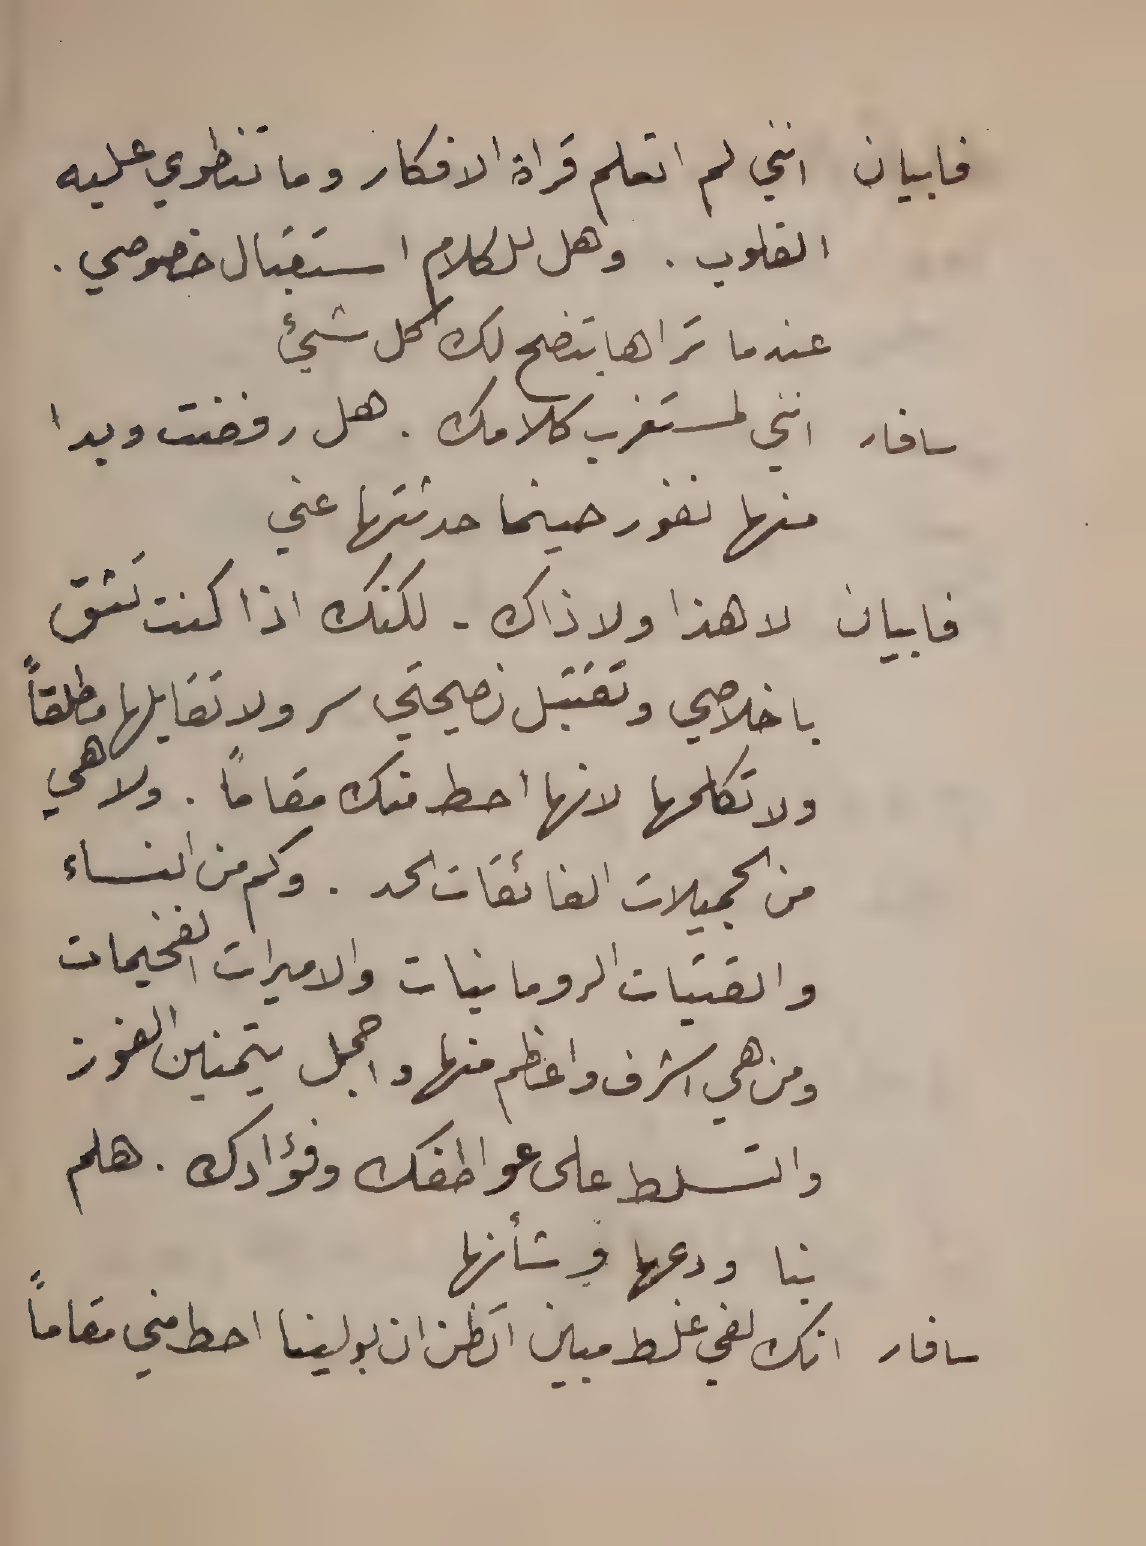 فابيان انني لم اتعلم قراة الافكار وما تنطوي عليه
القلوب . وهل للكلام استقبال خصوصي .
عندما تراها يتضح لك كل شيئ
سافار انني لمستغرب كلامك . هل رفضت وبدا
منها نفور حينما حدثتها عني
فابيان لا هذا ولا ذاك - لكنك اذا كنت تثق
باخلاصي وتقتبل نصيحتي سر ولا تقابلها مطلقاً
ولا تكلمها لانها احط منك مقاماً . ولا هي
من الجميلات الفائقات الحد . وكم من النساء
والفتيات الرومانيات والاميرات الفخيمات
ومن هي اشرف واعظم منها واجمل يتمنين الفوز
والتسلط على عواطفك وفؤادك . هلم
بنا ودعها وشأنها
سافار انك لفي غلط مبين اتظن ان بولينا احط مني مقاماً